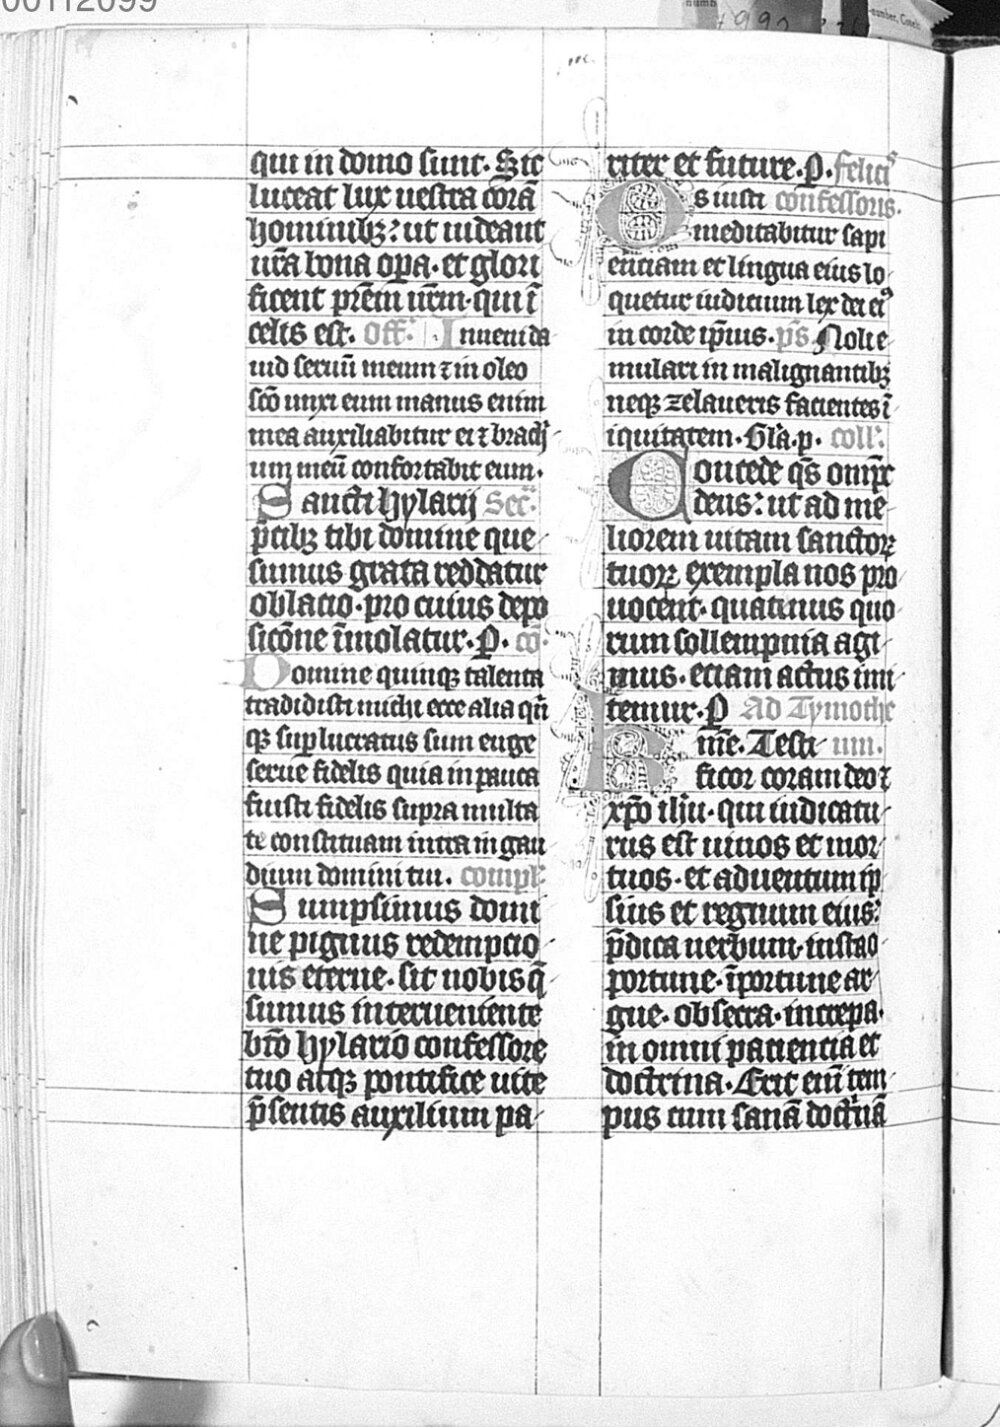 00112099
qui in domo sunt. Sic
luceat lux uestra corā
hominibꝫ: ut uideant
ur̄a bona oꝑa. et glori
ficent pr̄em ur̄m. qui ī
celis est. Off. Inueni da
uid seruū meum ⁊ in oleo
sc̄o unxi eum manus enim
mea auxiliabitur ei ⁊ brach
ium meū confortabit eum.
Sancti hylarij Sec̄.
p̄cibꝫ tibi domine que
sumus grata reddatur
oblacio. pro cuius depo
sicōne īmolatur. P. cō.
Domine quinqꝫ talenta
tradidisti michi ecce alia qn̄
qꝫ suꝑlucratus sum euge
serue fidelis quia in pauca
fuisti fidelis supra multa
te constituam intra in gau
dium domini tui. compl.
Sumpsimus domi
ne pignus redempcio
nis eterne. sit nobis q̄
sumus interueniente
bt̄o hylario confessore
tuo atqꝫ pontifice uite
p̄sentis auxilium pa
riter et future. P. felicis
Os iusti confessoris.
meditabitur sapi
enciam et lingua eius lo
quetur iudicium lex dei eiꝰ
in corde ip̄ius. p̄s. Noli e
mulari in malignantibꝫ
neqꝫ zelaueris facientes ī
iquitatem. Gl̄a. p. coll.
Concede qs̄ omp̄c
deus: ut ad me
liorem uitam sanctoꝝ
tuoꝝ exempla nos pro
uocent. quatinus quo
rum sollempnia agi
mus. eciam actus imi
temur. P Ad Tymothe
Kme. Testi um.
ficor coram deo ⁊
xp̄o ih̄u. qui iudicatu
rus est uiuos et mor
tuos. et aduentum ip
sius et regnum eius:
p̄dica uerbum. insta o
portune. īportune ar
gue. obsecra. increpa.
in omni paciencia et
doctrina. Erit eni̅ tem
pus cum sanā doctͥnā